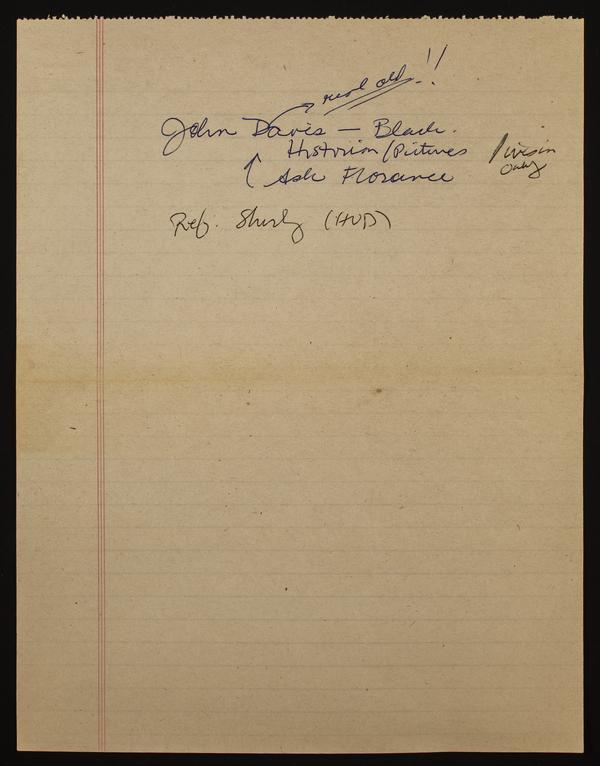 real old!!
John Davis — Black.
Historian/Pictures
Ask Florance
only
Ref. Shirly (HUD)